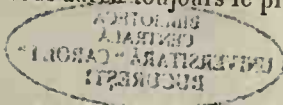 toujours le
BIBLIOTECA
CENTRALA
UNIVERSITARĂ "CAROL I"
BUCUREŞTI